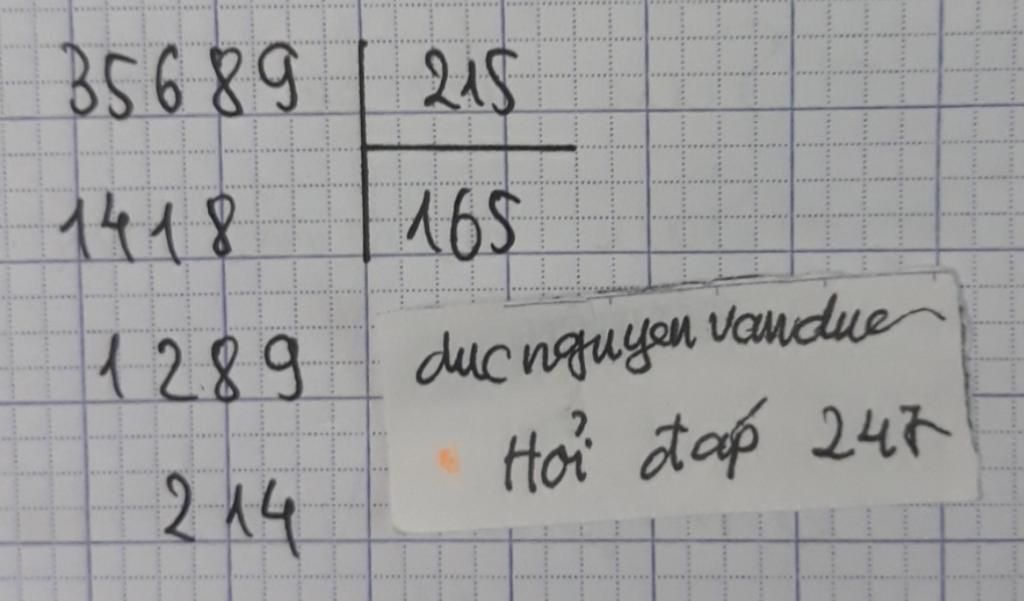 35689 215
1418 165
1289
214
ducnguyenvanduc
Hỏi đáp 247